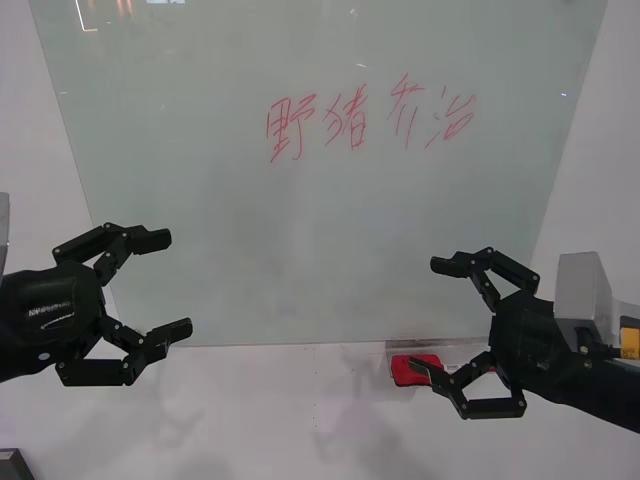 野猪乔治